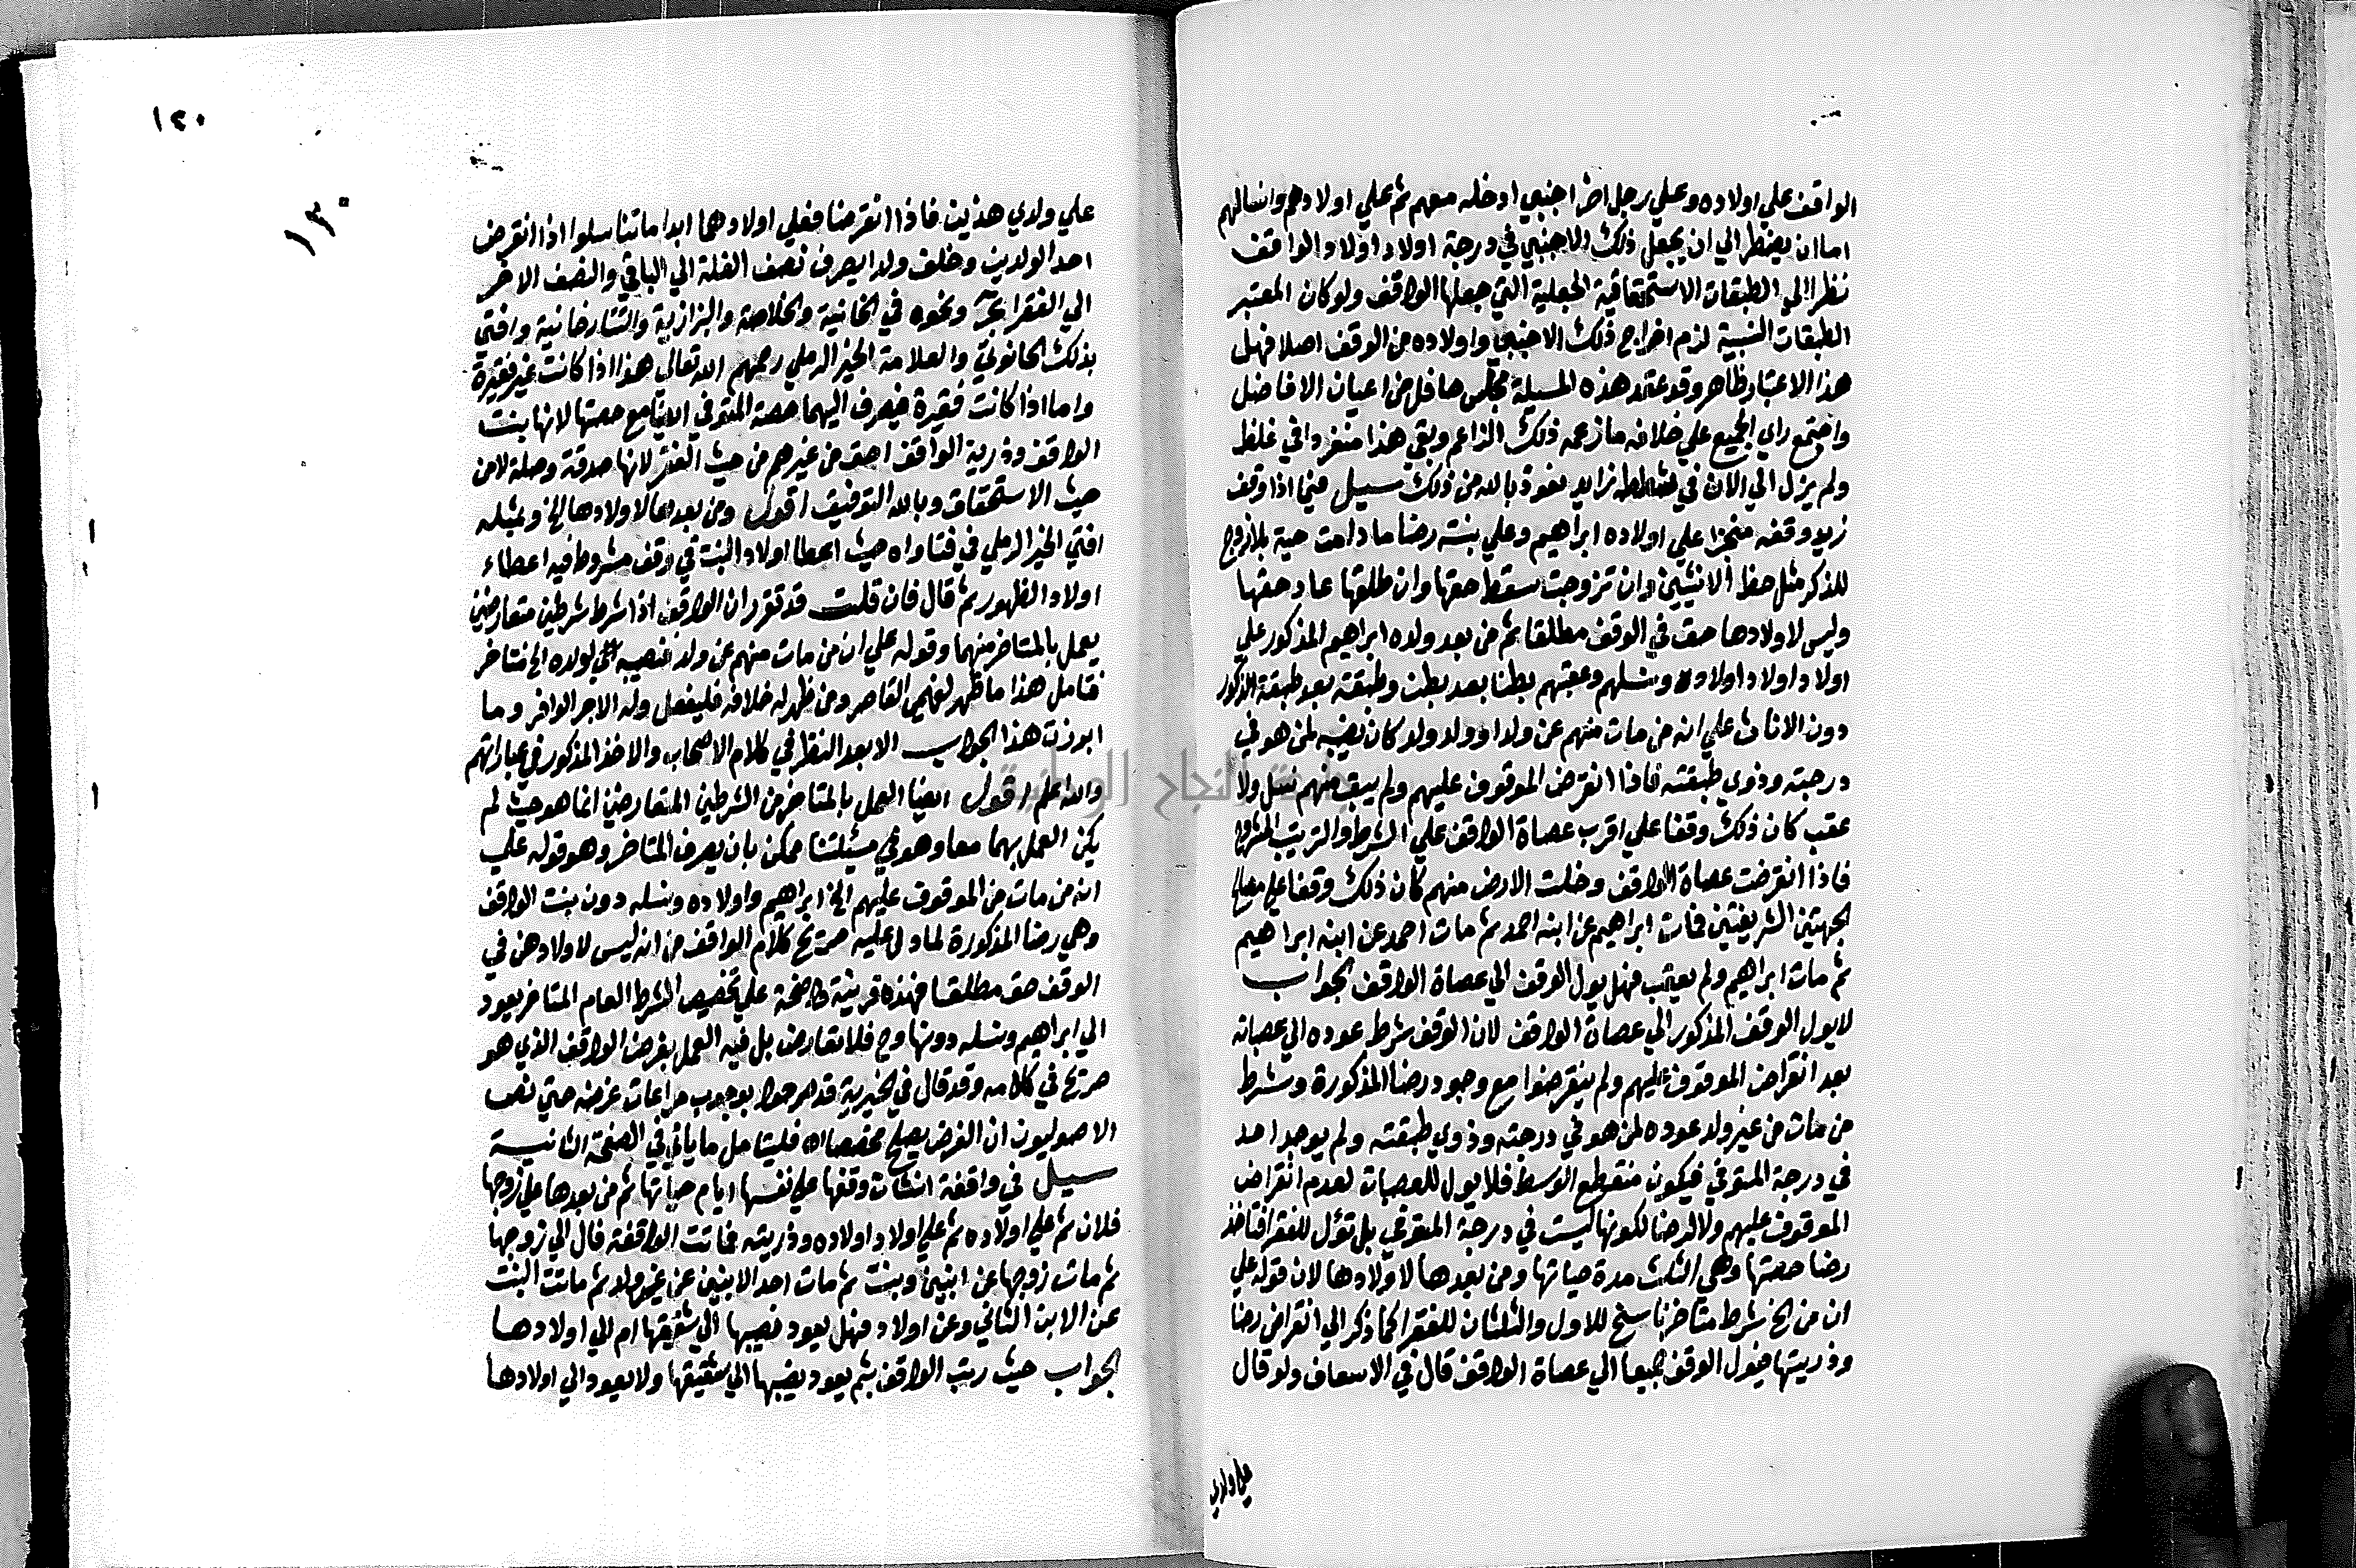 الواقف علي اولاده وعلي رجل اخر اجنبي ادخله معهم ثم علي اولادهم وانسالهم
اما ان يضطر الي ان يجعل ذلك الاجنبي في درجة اولاد اولاد الواقف
نظرا الي الطبقات الاستحقاقية الجعلية التي جعلها الواقف ولو كان المعتبر
الطبقات النسبية لزم اخراج ذلك الاجنبي واولاده من الوقف اصلا فهل
هذا الاعتبار ظاهر وقد عقد هذه المسيلة مجلس حافل من اعيان الافاضل
واجتمع راي الجميع علي خلاف ما زعمه ذلك الزاعم وبقي هذا متفردا في غلط
ولم يزل الي الان في شطط زايد نعوذ بالله من ذلك سيل فيما اذا وقف
زيد وقفه منجزا علي اولاده ابراهيم وعلي بنته رضا ما دامت حية بلا زوج
للذكر مثل حظ الانثيين وان تزوجت سقط حقها وان طلقها عاد حقها
وليس لاولادها حق في الوقف مطلقا ثم من بعد ولده ابراهيم المذكور علي
اولاد اولاد اولاده ونسلهم وعقبهم بطنا بعد بطن وطبقة بعد طبقة الذكور
دون الاناث علي انه من مات منهم عن ولد او ولد ولد كان نصيبه لمن هو في
درجته وذوي طبقته فاذا انقرض الموقوف عليهم ولم يبق منهم نسل ولا
عقب كان ذلك وقفا علي اقرب عصاة الواقف علي الشرط والترتيب المشروح
فاذا انقرضت عصاة الواقف وخلت الارض منهم كان ذلك وقفا علي مصالح
الجهتين الشريفتين فمات ابراهيم عن ابنه احمد ثم مات احمد عن ابنه ابراهيم
ثم مات ابراهيم ولم يعقب فهل يول الوقف الي عصاة الواقف الجواب
لا يول الوقف المذكور الي عصاة الواقف لان الوقف شرط عوده الي عصباته
بعد انقراض الموقوف عليهم ولم ينقرضوا مع وجود رضا المذكورة وشرط
من مات من غير ولد عوده لمن هو في درجته وذوي طبقته ولم يوجد احد
في درجة المتوفي فيكون منقطع الوسط فلا يول للعصبات لعدم انقراض
الموقوف عليهم ولا لرضا لكونها ليست في درجة المتوفي بل تؤل للفقرا فتاخذ
رضا حصتها وهي الثلث مدة حياتها ومن بعدها لاولادها لان قوله علي
ان من الخ شرط متاخر ناسخ للاول والثلثان للفقرا كما ذكر الي انقراض رضا
وذريتها فيول الوقف جميعا الي عصاة الواقف قال في الاسعاف ولو قال
علي ولدي
١٢٠
١٣٠
علي ولدي هذين فاذا انقرضا فعلي اولادهما ابدا ما تناسلوا اذا انقرض
احد الولدين وخلف ولدا يصرف نصف الغلة الي الباقي والنصف الاخر
الي الفقرا بحر ونحوه في الخانية والخلاصة والبزازية والتتارخانية وافتي
بذلك الحانوتي والعلامة الخير الرملي رحمهم الله تعالي هذا اذا كانت غير فقيرة
واما اذا كانت فقيرة فيصرف اليها حصة المتوفي ايضا مع حصتها لانها بنت
الواقف وذرية الواقف احق من غيرهم من حيث الفقر لانها صدقة وصلة لا من
حيث الاستحقاق وبالله التوفيق اقول ومن بعدها لاولادها الخ وبمثله
افتي الخير الرملي في فتاواه حيث اعطا اولاد البنت في وقف مشروط فيه اعطاء
اولاد الظهور ثم قال فان قلت قد تقرر ان الواقف اذا شرط شرطين متعارضين
يعمل بالمتاخر منهما وقوله علي ان من مات منهم عن ولد فنصيبه لولده الخ متاخر
فتامل هذا ما ظهر لفهمي القاصر ومن ظهر له خلافه فليفعل وله الاجر الوافر وما
ابرزت هذا الجواب الا بعد النظر في كلام الاصحاب والاخذ المذكور في عباراتهم
والله اعلم اقول ايضا العمل بالمتاخر من الشرطين المتعارضين انما هو حيث لم
يكن العمل بهما معا وهو في مسئلتنا ممكن بان يصرف المتاخر وهو قوله علي
انه من مات من الموقوف عليهم الخ ابراهيم واولاده ونسله دون بنت الواقف
وهي رضا المذكورة لما دل عليه صريح كلام الواقف من انه ليس لاولادهن في
الوقف حق مطلقا فهذه قرينة واضحة علي تخصيص الشرط العام المتاخر بعود
الي ابراهيم ونسله دونها وح فلا تعارض بل فيه العمل بغرض الواقف الذي هو
صريح في كلامه وقد قال في الخيرية قد صرحوا بوجوب مراعات غرضه حتي نص
الاصوليون ان الغرض يصلح مخصصا اه فليتامل ما ياتي في الصفحة الثانية
سيل في واقفة انشات وقفها علي نفسها ايام حياتها ثم من بعدها علي زوجها
فلان ثم علي اولاده ثم علي اولاد اولاده وذريته فماتت الواقفة فال الي زوجها
ثم مات زوجها عن ابنين وبنت ثم مات احد الابنين عن غير ولد ثم ماتت البنت
عن الابن الثاني وعن اولاد فهل يعود نصيبها الي شقيقها ام الي اولادها
الجواب حيث رتب الواقف بثم يعود نصيبها الي شقيقها ولا يعود الي اولادها